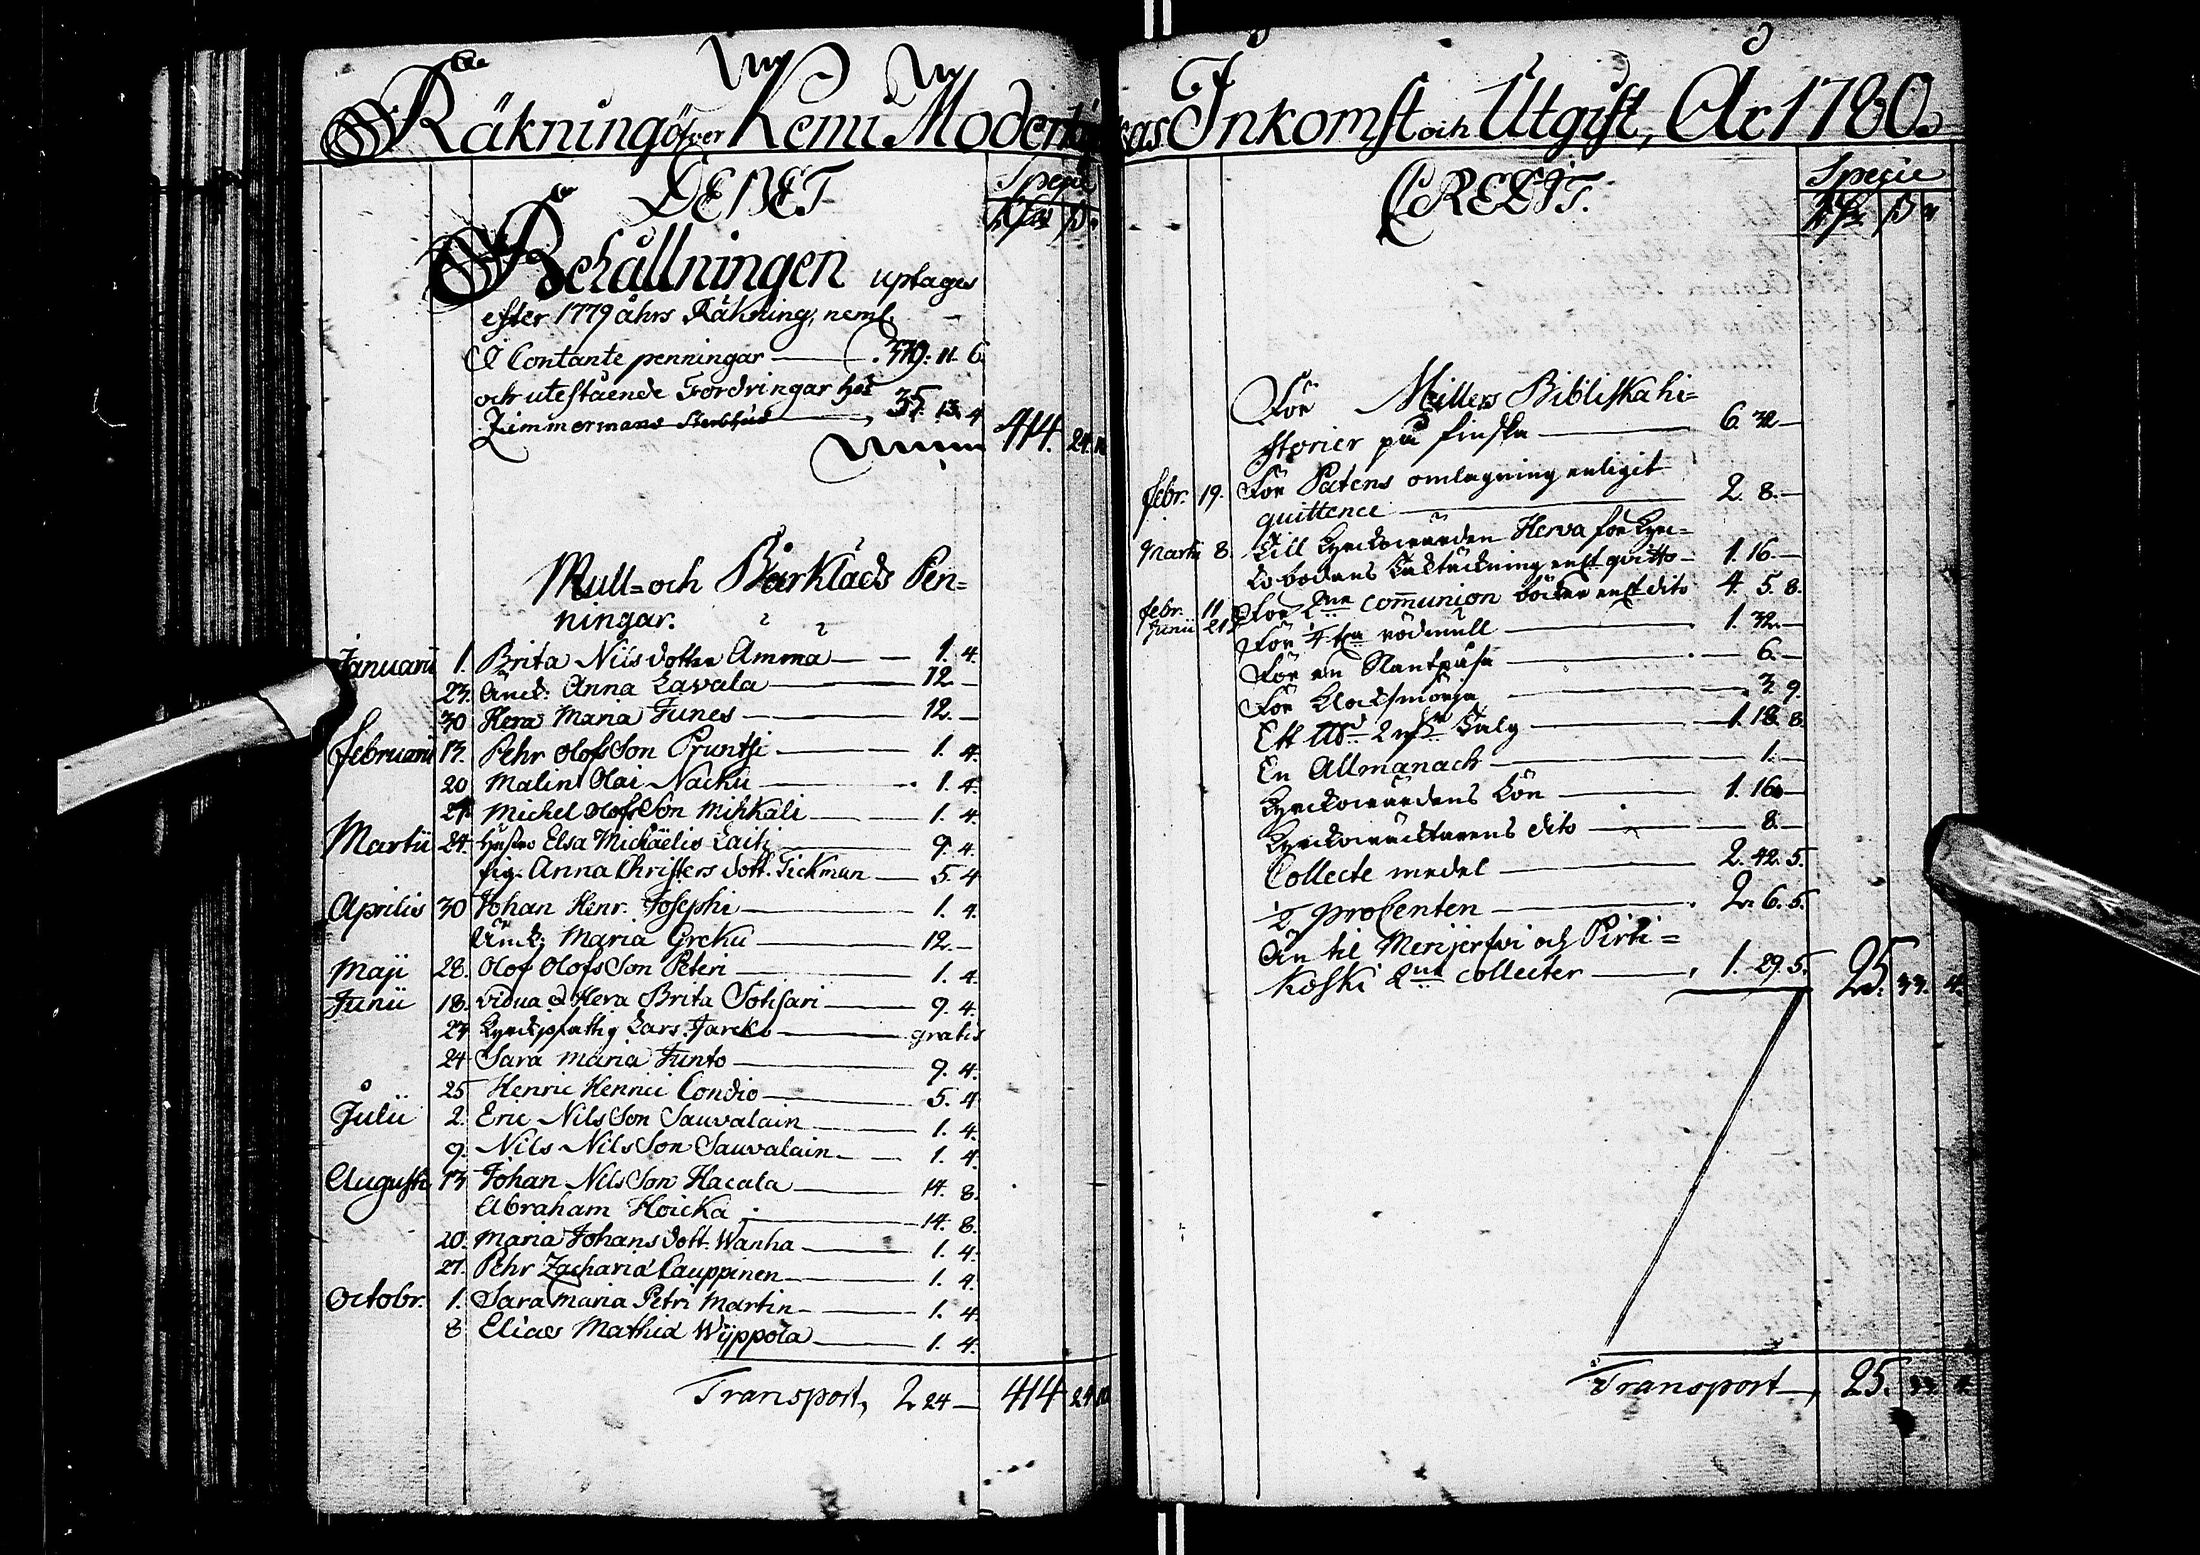 Räkning öfver Kemi Moderkyrkas Inkomst och Utgift, År 1780.
DEBET
Specie
Behållningen uptages
efter 1779 åhrs Räkning, neml.
Contante penningar 379: 11. 6.
och utestående Fordringar hos
Zimmermans Sterbhus 35. 13. 4
414. 24. 10
Mull- och Bårklæds Pen=
ningar.
Januarii 1. Brita Nils dotter Amma 1. 4.
23. Änck: Anna Lavala 12. –
30 Hera Maria Junes 12. –
Februarii 13. Pehr Olofs Son Pruntsi 1. 4.
20 Malin Olai Nacku 1. 4.
27. Michel Olofs Son Mihkali 1. 4.
Martii 24. Hustro Elsa Michäelis Laiti 9. 4.
Pig. Anna Christers dott. Tickman 5. 4
Aprilis 30 Johan Henr. Josephi 1. 4.
Änck: Maria Greku 12. –
Maji 28. Olof Olofs Son Peteri 1. 4.
Junii 18. Vidua Hera Brita Sohsari 9. 4.
23 Kyrckfattig Lars Jarcko gratis
24 Sara Maria Junto 9. 4.
25 Henric Henrici Condio 5. 4
Julii 2. Eric Nils Son Sauvalain 1. 4.
9. Nils Nils Son Sauvalain 1. 4.
Augusti 13 Johan Nils Son Hacala 14. 8.
Abraham Hoicka 14. 8.
20. Maria Johans dott. Wanha 1. 4.
27. Pehr Zachariæ Cauppinen 1. 4.
Octobr. 1. Sara Maria Petri Martin 1. 4.
8 Elias Mathiæ Wyppola 1. 4.
Transport, 2 24 – 414 24 10
CREDIT.
Specie
För Millers Bibliska hi=
storier på finska 6. 32 –
Febr. 19. För Patens omlagning enligit
quittence 2. 8. –
Martii 8. Till Kyrckowärden Herva för Kyrc=
ko bodans taktäckning enl. quitto 1. 16. –
Febr. 11 För 2ne communion böcker enl. dito 4. 5. 8.
Junii 21 För 4 rödmull 1. 32. –
För en 6. –
För Klocksmörja 3. 9.
Ett 2 Talg 1. 18. 8.
En Allmanach 1. –
Kyrckowärdens Lön 1. 16. –
Kyrckowäcktarens dito 8. –
Collecte medel 2. 42. 5.
1/2 procenten 2. 6. 5.
Än til Merijerfvi och Pirti=
koski 2ne collecter 1. 29. 5. 25. 33. 4.
Transport, 25. 33. 4.